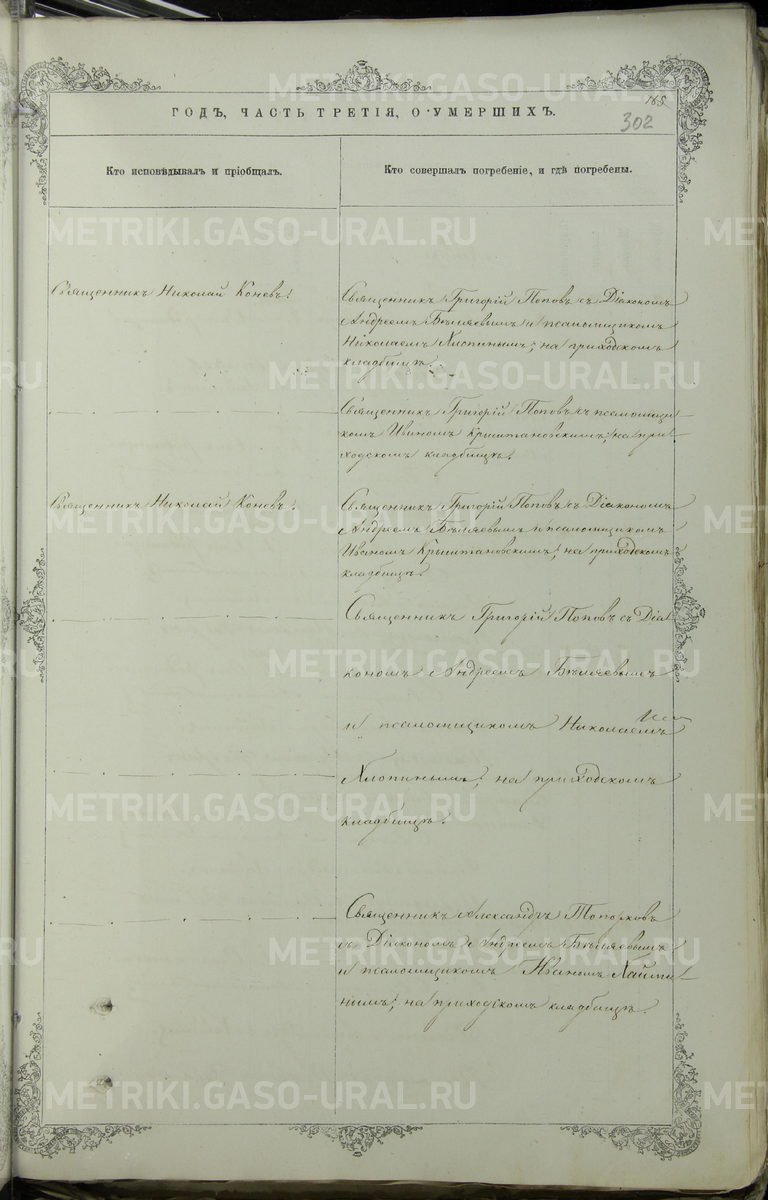 165
302
ГОДЪ, ЧАСТЬ ТРЕТІЯ, О УМЕРШИХЪ.
Кто исповѣдывалъ и пріобщалъ.
Кто совершалъ погребеніе, и гдѣ погребены.
Священникъ Николай Коневъ.
Священникъ Григорій Поповъ съ Діакономъ
Андреемъ Бѣляевымъ и псаломщикомъ
Николаемъ Хлопинымъ; на приходскомъ
кладбищѣ.
Священникъ Григорій Поповъ съ псаломщи-
комъ Иваномъ Крыштановскимъ; на при-
ходскомъ кладбищѣ.
Священникъ Николай Коневъ.
Священникъ Григорій Поповъ съ Діакономъ
Андреемъ Бѣляевымъ и псаломщикомъ
Иваномъ Крыштановскимъ; на приходскомъ
кладбищѣ.
Священникъ Григорій Поповъ съ Діа-
кономъ Андреемъ Бѣляевымъ
и псаломщикомъ Николаемъ
Хлопинымъ; на приходскомъ
кладбищѣ.
Священникъ Александръ Топорковъ
съ Діакономъ Андреемъ Бѣляевымъ
и псаломщикомъ Иваномъ
нымъ; на приходскомъ кладбищѣ.
METRIKI.GASO-URAL.RU